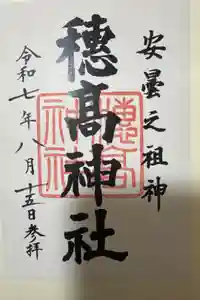 安曇之祖神
穂髙神社
令和七年八月十五日参拝